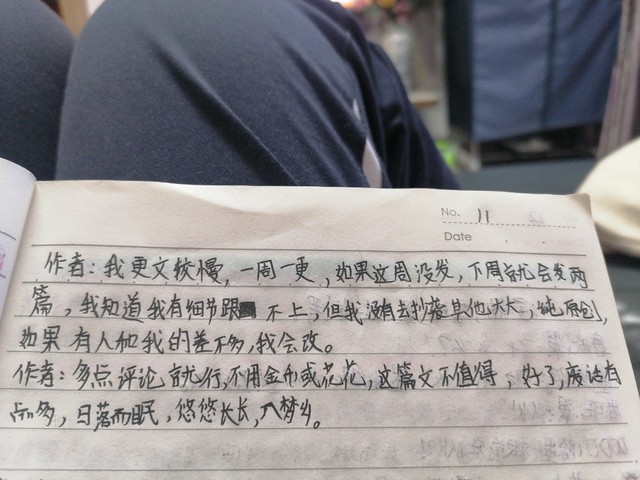 No. 11
Date
作者：我更文较慢，一周一更，如果这周没发，下周就会发两
篇，我知道我有细节跟不上，但我没有去抄袭其他大大，纯原创，
如果有人和我的差不多，我会改。
作者：多点评论就行，不用金币或花花，这篇文不值得，好了，废话有
点多，日落而眠，悠悠长长，入梦乡。